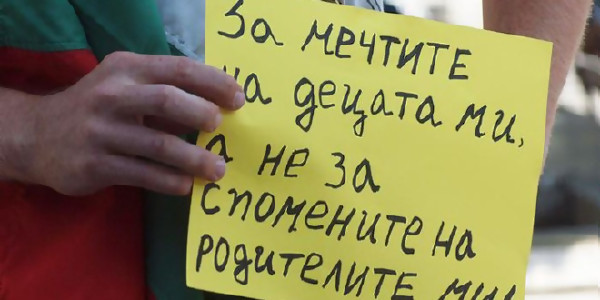 За мечтите
на децата ми,
а не за
спомените на
родителите ми!